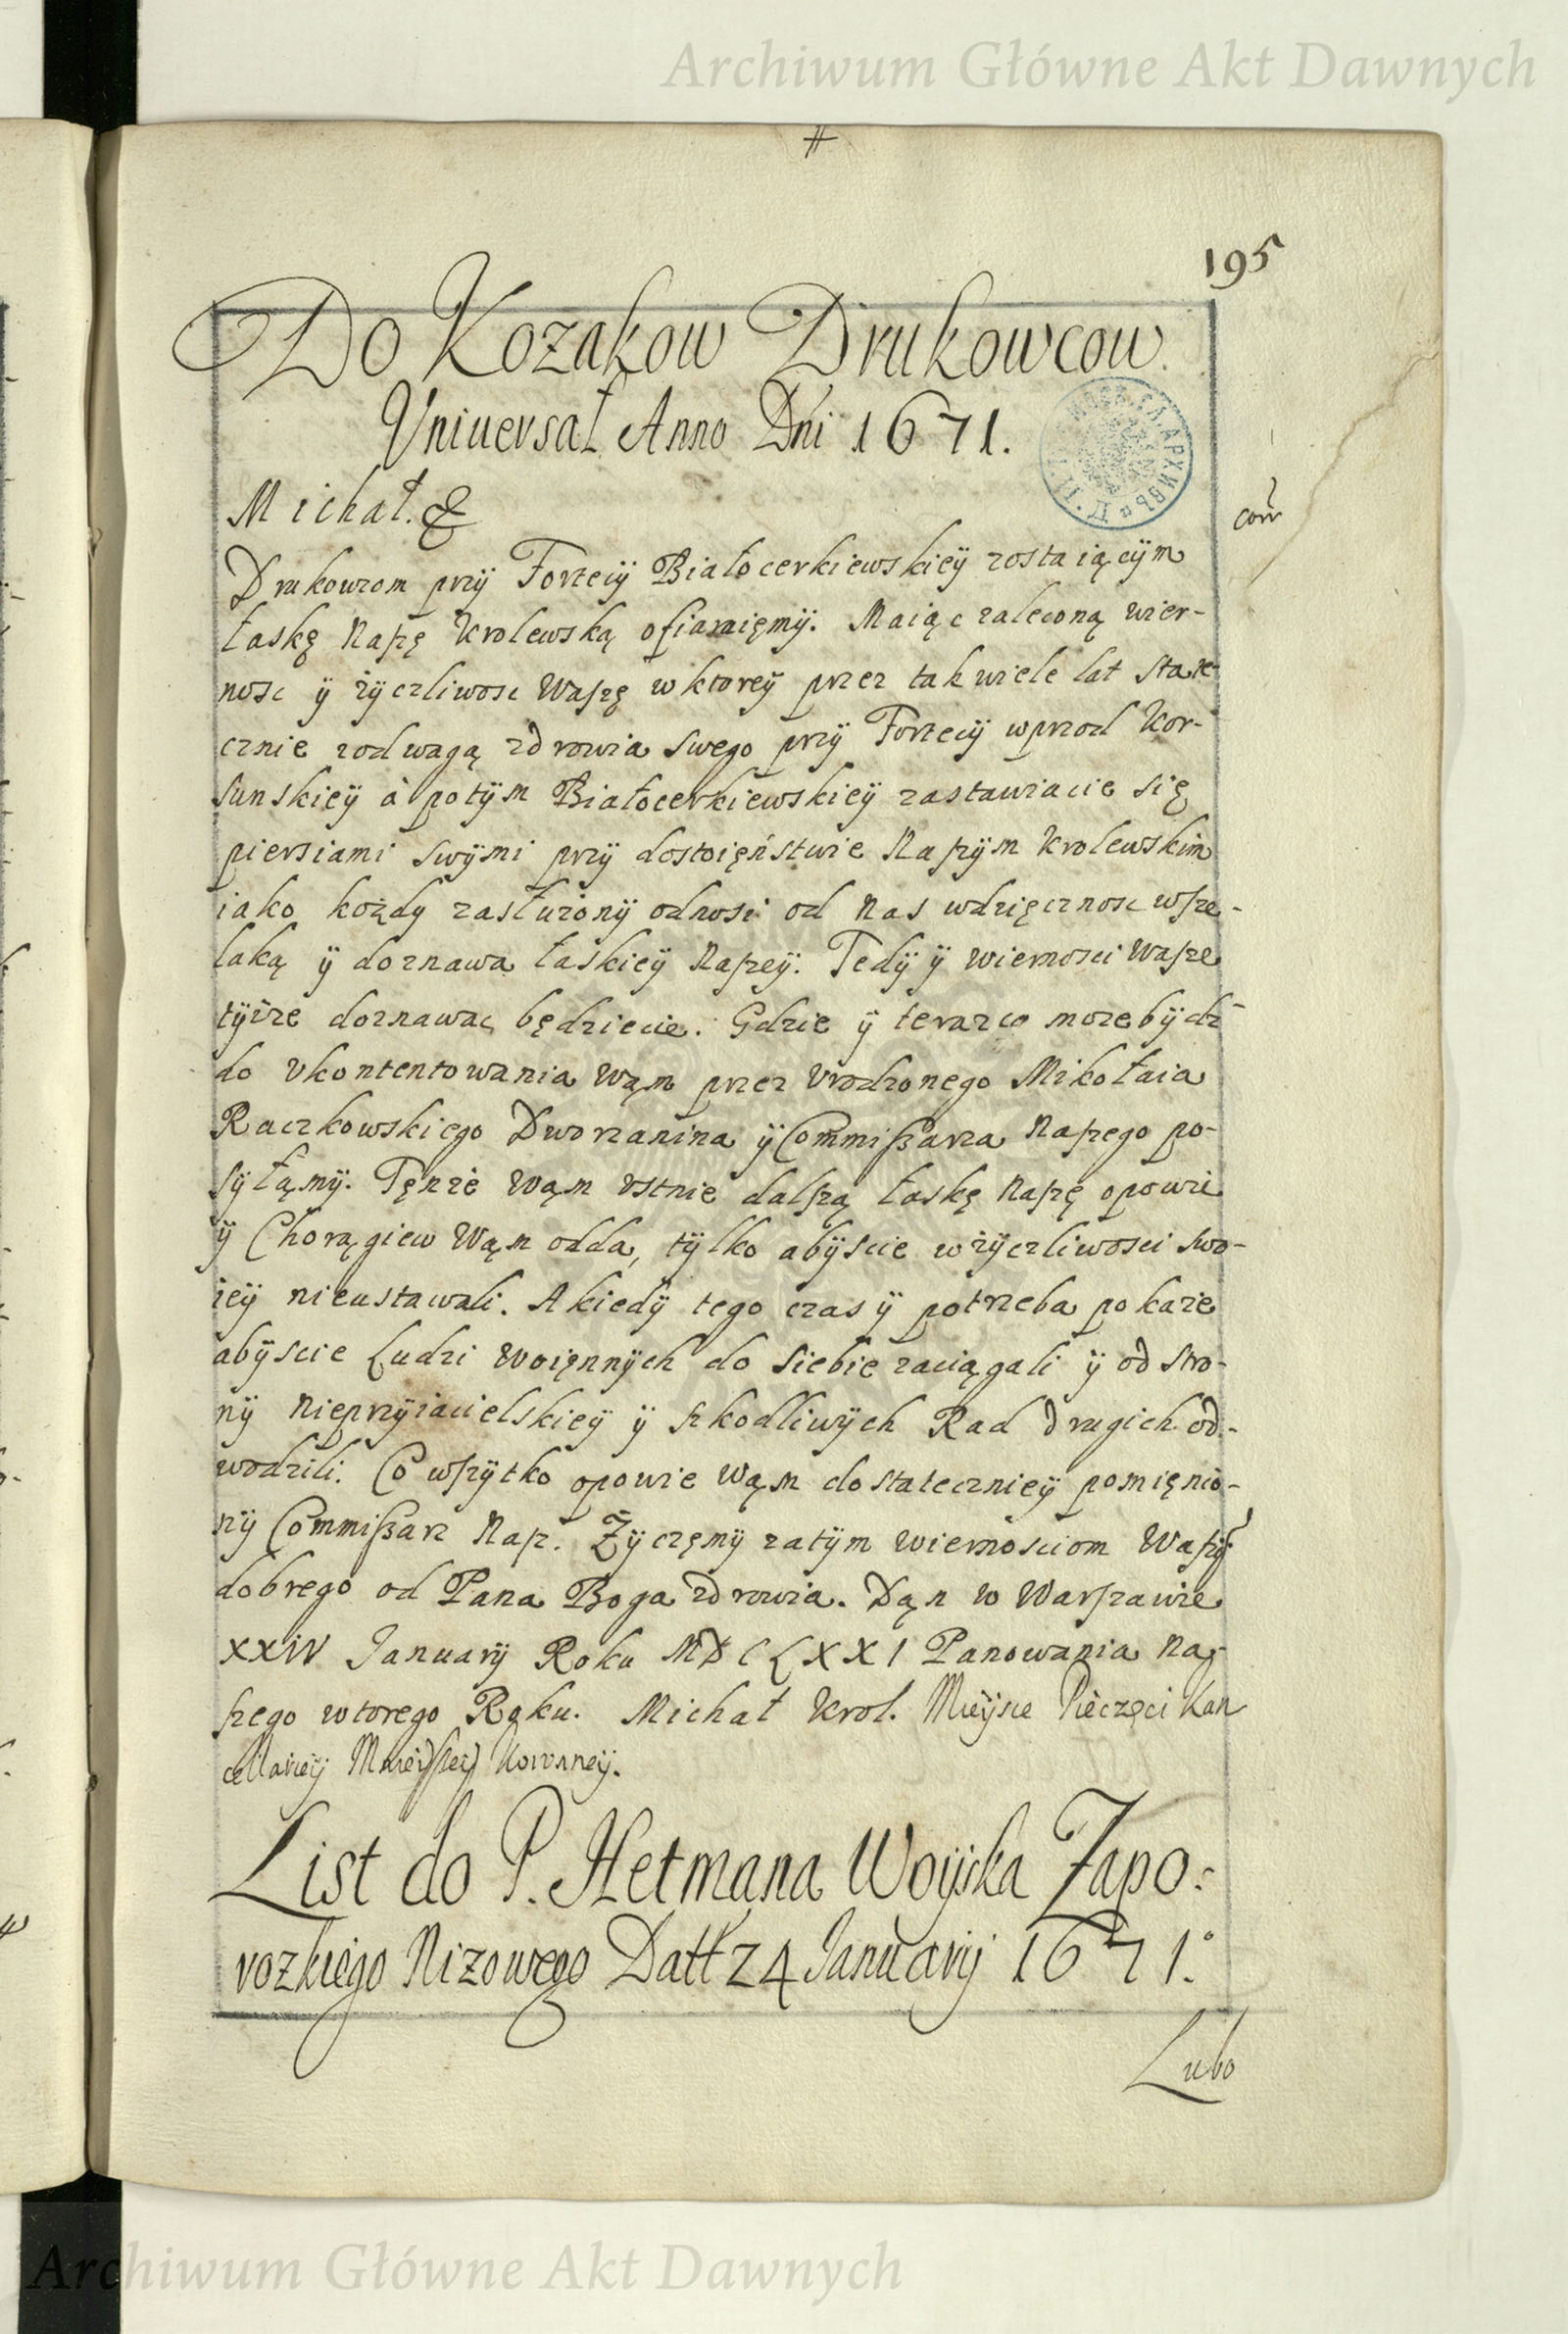 Archiwum Główne Akt Dawnych
#
195
Do Kozakow Drukowcow.
Vniuersał Anno Dni 1671.
Michał. &
corr
Drukowcom przÿ Fortecÿ Białocerkiewskieÿ zostaiącÿm
łaskę Naszę Krolewską ofiaruięmÿ. Maiąc zaleconą wier-
nosc ÿ żÿczliwosc Waszę w ktoreÿ przez tak wiele lat state-
cznie z odwagą zdrowia swego przÿ Fortecÿ wprzod Kor-
sunskieÿ à potÿm Białocerkiewskieÿ zastawiacie się
piersiami swÿmi przÿ dostoięństwie Naszÿm Krolewskim
iako kożdy zasłużonÿ odnosi od Nas wdzięcznosc wsze-
laką ÿ doznawa łaskieÿ Naszeÿ. Tedÿ ÿ wiernosci Wasze
tÿżże doznawac będziecie. Gdzie ÿ teraz co może bÿdź
do vkontentowania Wąm przez Vrodzonego Mikołaia
Raczkowskiego Dworzanina ÿ Commißarza Naszego po-
sÿłąmÿ. Tęnże Wąm vstnie dalszą łaskę Naszę opowie
ÿ Chorągiew Wąm odda, tÿlko abÿscie w żÿczliwosci swo-
ieÿ nieustawali. A kiedÿ tego czas ÿ potrzeba pokaże
abÿscie Ludzi Woięnnÿch do siebie zaciągali ÿ od stro-
nÿ Nieprzÿiacielskieÿ ÿ szkodliwÿch Rad drugich od-
wodzili. Co wszÿtko opowie Wąm dostateczniey pomięnio-
nÿ Commißarz Nasz. Żÿczęmÿ zatÿm Wiernosciom Waszÿ
dobrego od Pana Boga zdrowia. Dąn w Warszawie
XXIV Januarÿ Roku MDCLXXI Panowania Na-
szego wtorego Roku. Michał Krol. Mieÿsce Pieczęci Kan
cellarieÿ Mnieÿszeÿ Koronneÿ.
List do P. Hetmana Woÿska Zapo:
rozkiego Nizowego Datt 24 Januarij 1671.
Lubo
Archiwum Główne Akt Dawnych